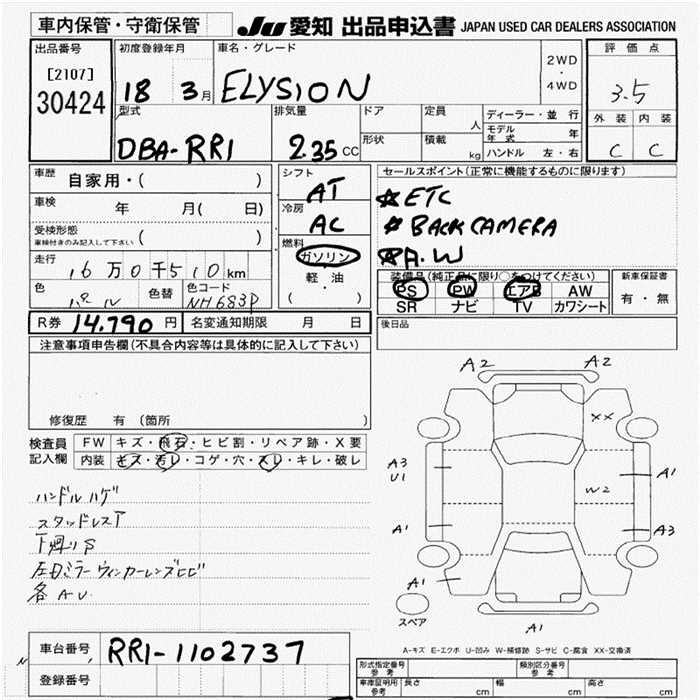 車内保管・守衛保管
JU 愛知 出品申込書 JAPAN USED CAR DEALERS ASSOCIATION
出品番号
[2107]
30424
初度登録年月
18 3月
車名・グレード
ELYSION
2WD
・
4WD
評価点
3.5
外装 内装
C C
型式
DBA-RR1
排気量
2.35 CC
ドア
形状
定員
人
積載
kg
ディーラー・並行
モデル年式 年
ハンドル 左・右
車歴 自家用・( )
車検 年 月( 日)
受検形態
車検付きのみ記入して下さい ( )
走行 16万0千510km
色 パール 色替 色コード NH683P
R券 14,790円 名変通知期限 月 日
シフト
AT
冷房
AC
燃料
ガソリン
軽・油
( )
セールスポイント(正常に機能するものに限ります)
☆ETC
☆BACK CAMERA
☆A.W
装備品(純正品に限り○をつけてください)
PS PW エアB AW
SR ナビ TV カワシート
新車保証書
有・無
後日品
注意事項申告欄(不具合内容等は具体的に記入して下さい)
修復歴 有(箇所 )
検査員記入欄
FW キズ・飛石・ヒビ割・リペア跡・X要
内装 キズ・汚レ・コゲ・穴・スレ・キレ・破レ
ハンドルハゲ
スタッドレスT
下廻りS
左ドミラーウィンカーレンズヒビ
各AU
A2 A2
XX
A3
U1
A1
W2
A1
A3
A1
スペア
A1
A-キズ E-エクボ U-凹み W-補修跡 S-サビ C-腐食 XX-交換済
車台番号 RR1-1102737
登録番号
形式指定番号
参考
類別区分番号
参考
車庫証明用
参考
長さ cm 幅 cm 高さ cm